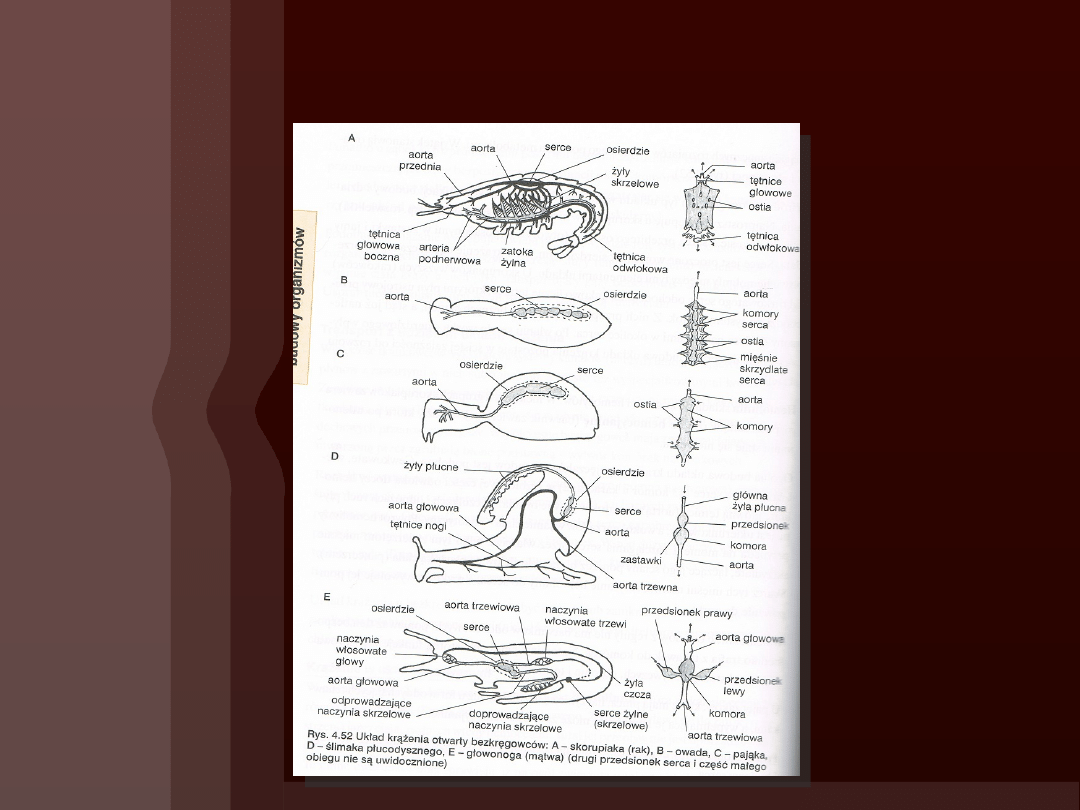 A
aorta
przednia
aorta
serce
osierdzie
żyły
skrzelowe
tętnica
głowowa
boczna
arteria
podnerwowa
zatoka
żylna
tętnica
odwłokowa
aorta
tętnice
głowowe
ostia
tętnica
odwłokowa
budowy organizmów
B
aorta
serce
osierdzie
aorta
komory
serca
ostia
mięśnie
skrzydlate
serca
C
osierdzie
serce
aorta
ostia
aorta
komory
D
żyły płucne
osierdzie
aorta głowowa
serce
tętnice nogi
aorta
aorta trzewna
główna
żyła płucna
przedsionek
komora
zastawki
aorta
E
osierdzie
aorta trzewiowa
naczynia
włosowate trzewi
serce
naczynia
włosowate
głowy
aorta głowowa
odprowadzające
naczynia skrzelowe
doprowadzające
naczynia skrzelowe
żyła
czcza
serce żylne
(skrzelowe)
przedsionek prawy
aorta głowowa
przedsionek
lewy
komora
aorta trzewiowa
Rys. 4.52 Układ krążenia otwarty bezkręgowców: A – skorupiaka (rak), B – owada, C – pająka,
D – ślimaka płucodysznego, E – głowonoga (mątwa) (drugi przedsionek serca i część małego
obiegu nie są uwidocznione)